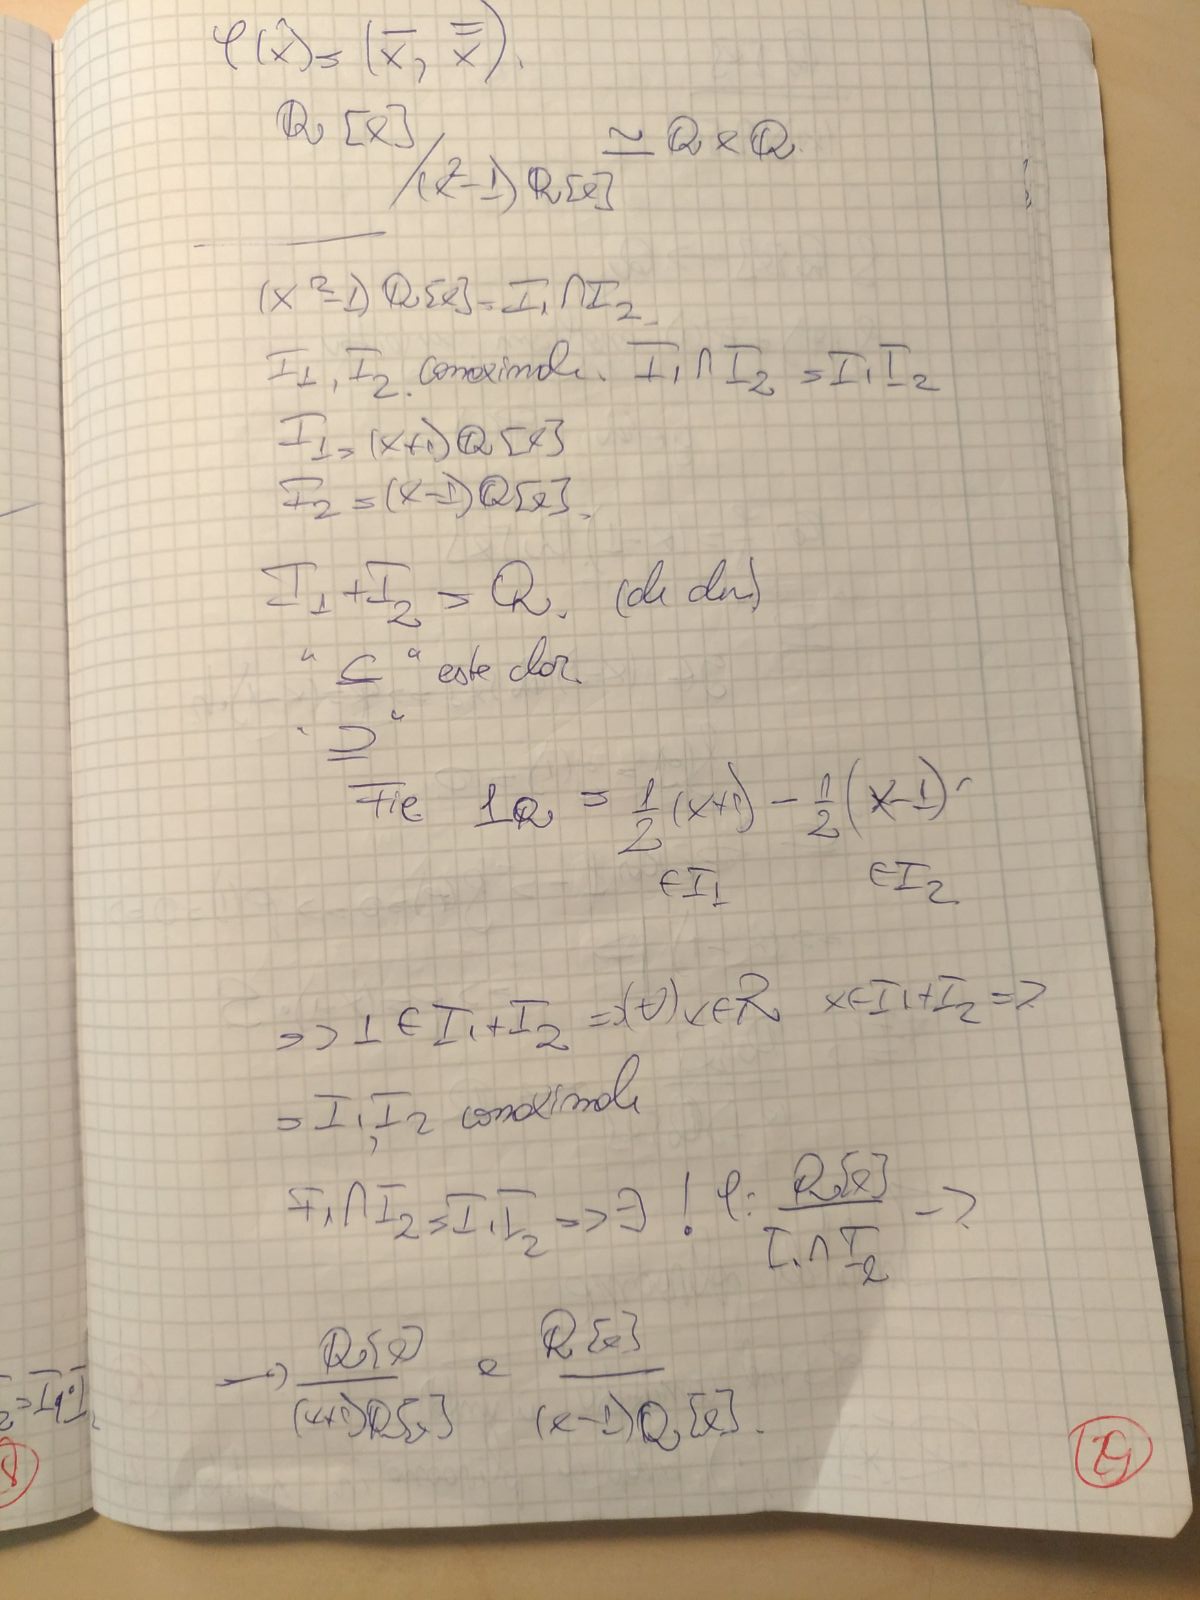 φ(x̂) = (x̄, x̿).
Q[x]/(x²-1)Q[x] ≃ Q × Q.
(x²-1)Q[x] = I₁ ∩ I₂.
I₁, I₂ comaximale. I₁ ∩ I₂ = I₁I₂
I₁ = (x+1)Q[x]
I₂ = (x-1)Q[x].
I₁ + I₂ = Q. (de dem)
"⊆" este clar.
"⊇"
Fie 1Q = 1/2 (x+1) - 1/2 (x-1).
∈I₁ ∈I₂.
=> 1 ∈ I₁+I₂ => (∀) x∈R x∈I₁+I₂ =>
= I₁, I₂ comaximale
I₁∩I₂ = I₁I₂ => ∃! φ: Q[x]/I₁∩I₂ ->
-> Q[x]/(x+1)Q[x] × Q[x]/(x-1)Q[x].